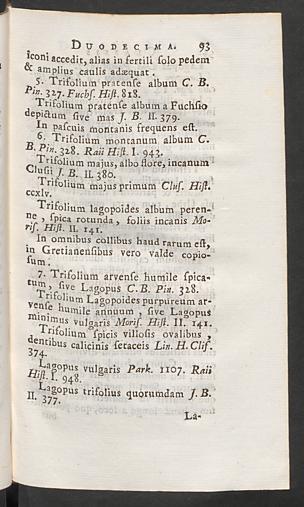 DUODECIMA. 93
iconi accedit, alias in fertili solo pedem
& amplius caulis adæquat.
5. Trifolium pratense album C. B.
Pin. 327. Fuchs. Hist. 818.
Trifolium pratense album a Fuchsio
depictum sive mas J. B. II. 379.
In pascuis montanis frequens est.
6. Trifolium montanum album C.
B. Pin. 328. Raii Hist. I. 943.
Trifolium majus, albo flore, incanum
Clusii J. B. II. 380.
Trifolium majus primum Clus. Hist.
ccxlv.
Trifolium lagopoides album peren-
ne, spica rotunda, foliis incanis Mo-
ris. Hist. II. 141.
In omnibus collibus haud rarum est,
in Gretianensibus vero valde copio-
sum.
7. Trifolium arvense humile spica-
tum, sive Lagopus C. B. Pin. 328.
Trifolium Lagopoides purpureum ar-
vense humile annuum, sive Lagopus
minimus vulgaris Moris. Hist. II. 141.
Trifolium spicis villosis ovalibus,
dentibus calicinis setaceis Lin. H. Clif.
374.
Lagopus vulgaris Park. 1107. Raii
Hist. I. 948.
Lagopus trifolius quorumdam J. B.
II. 377.
La-